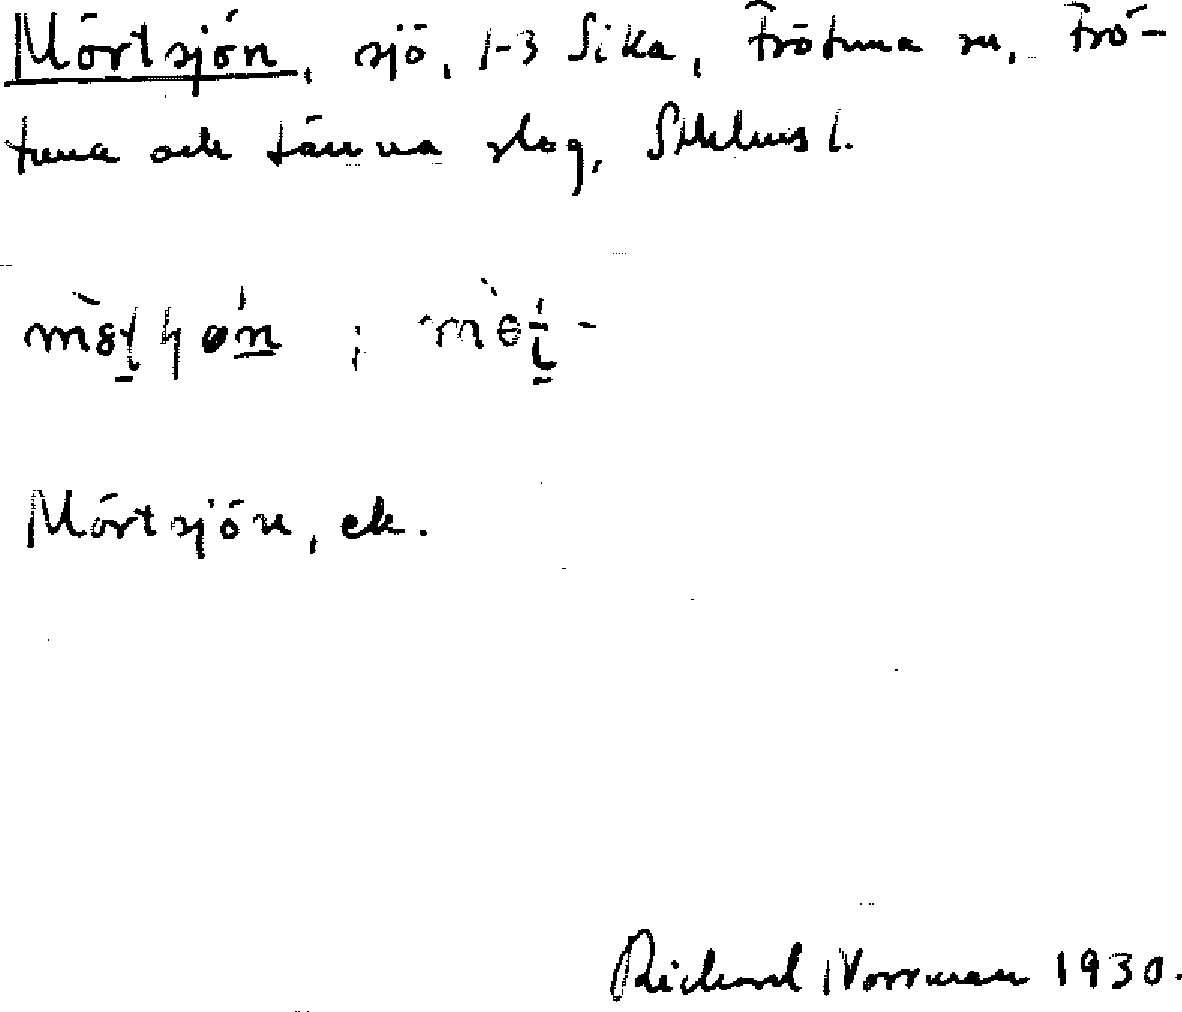 Mörtsjön, sjö, 1-3 Sika, Frötuna sn, Frö-
tuna och Länna slag, Sthlms l.
Mörtsjön, ek.
Richard Norrman 1930.